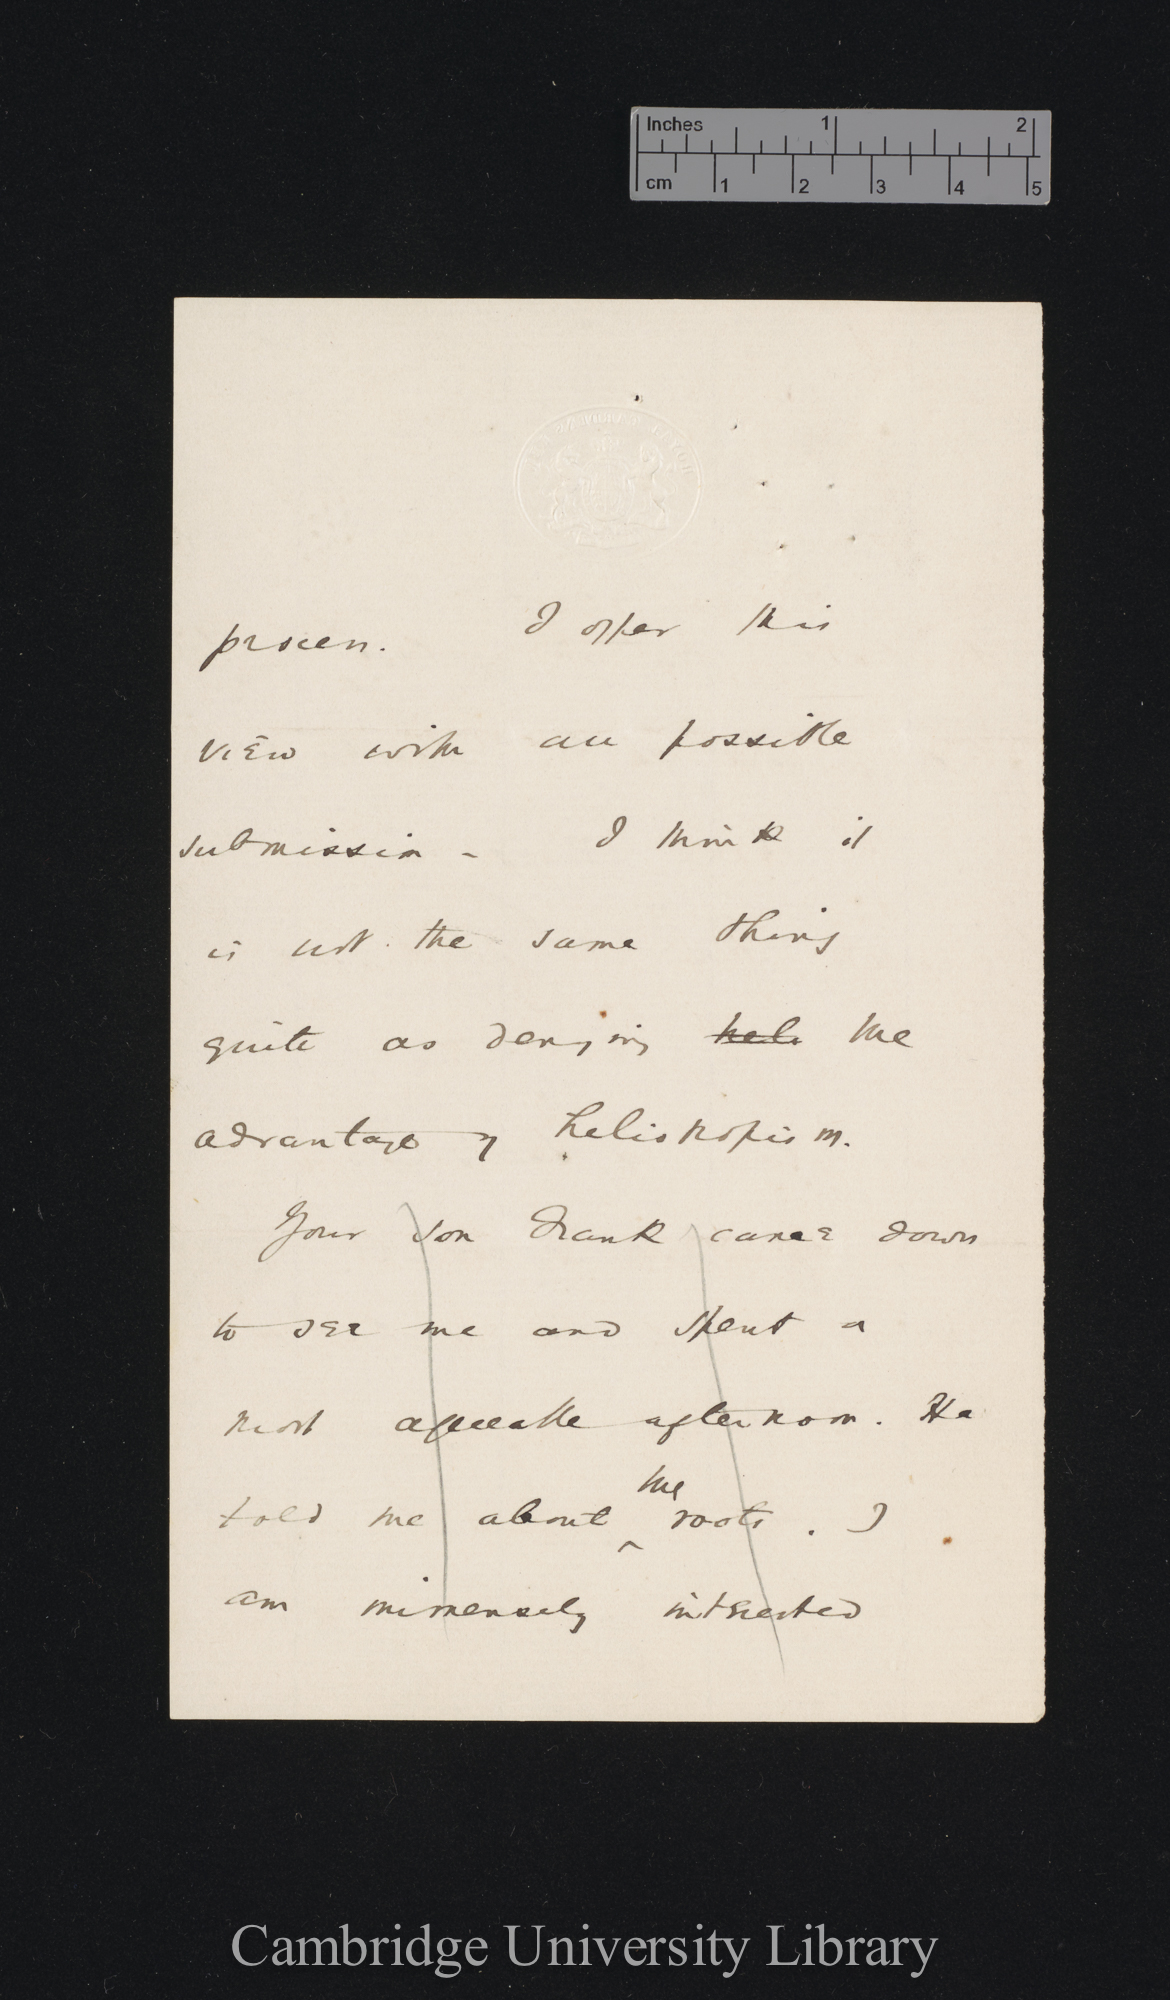 Inches 1 2
cm 1 2 3 4 5
process. I offer this
view with all possible
submission - I think it
is not the same thing
quite as denying hel. the
advantage of heliotropism.
Your son Frank came down
to see me and spent a
most agreeable afternoon. He
told me about the roots. I
am immensely interested
Cambridge University Library